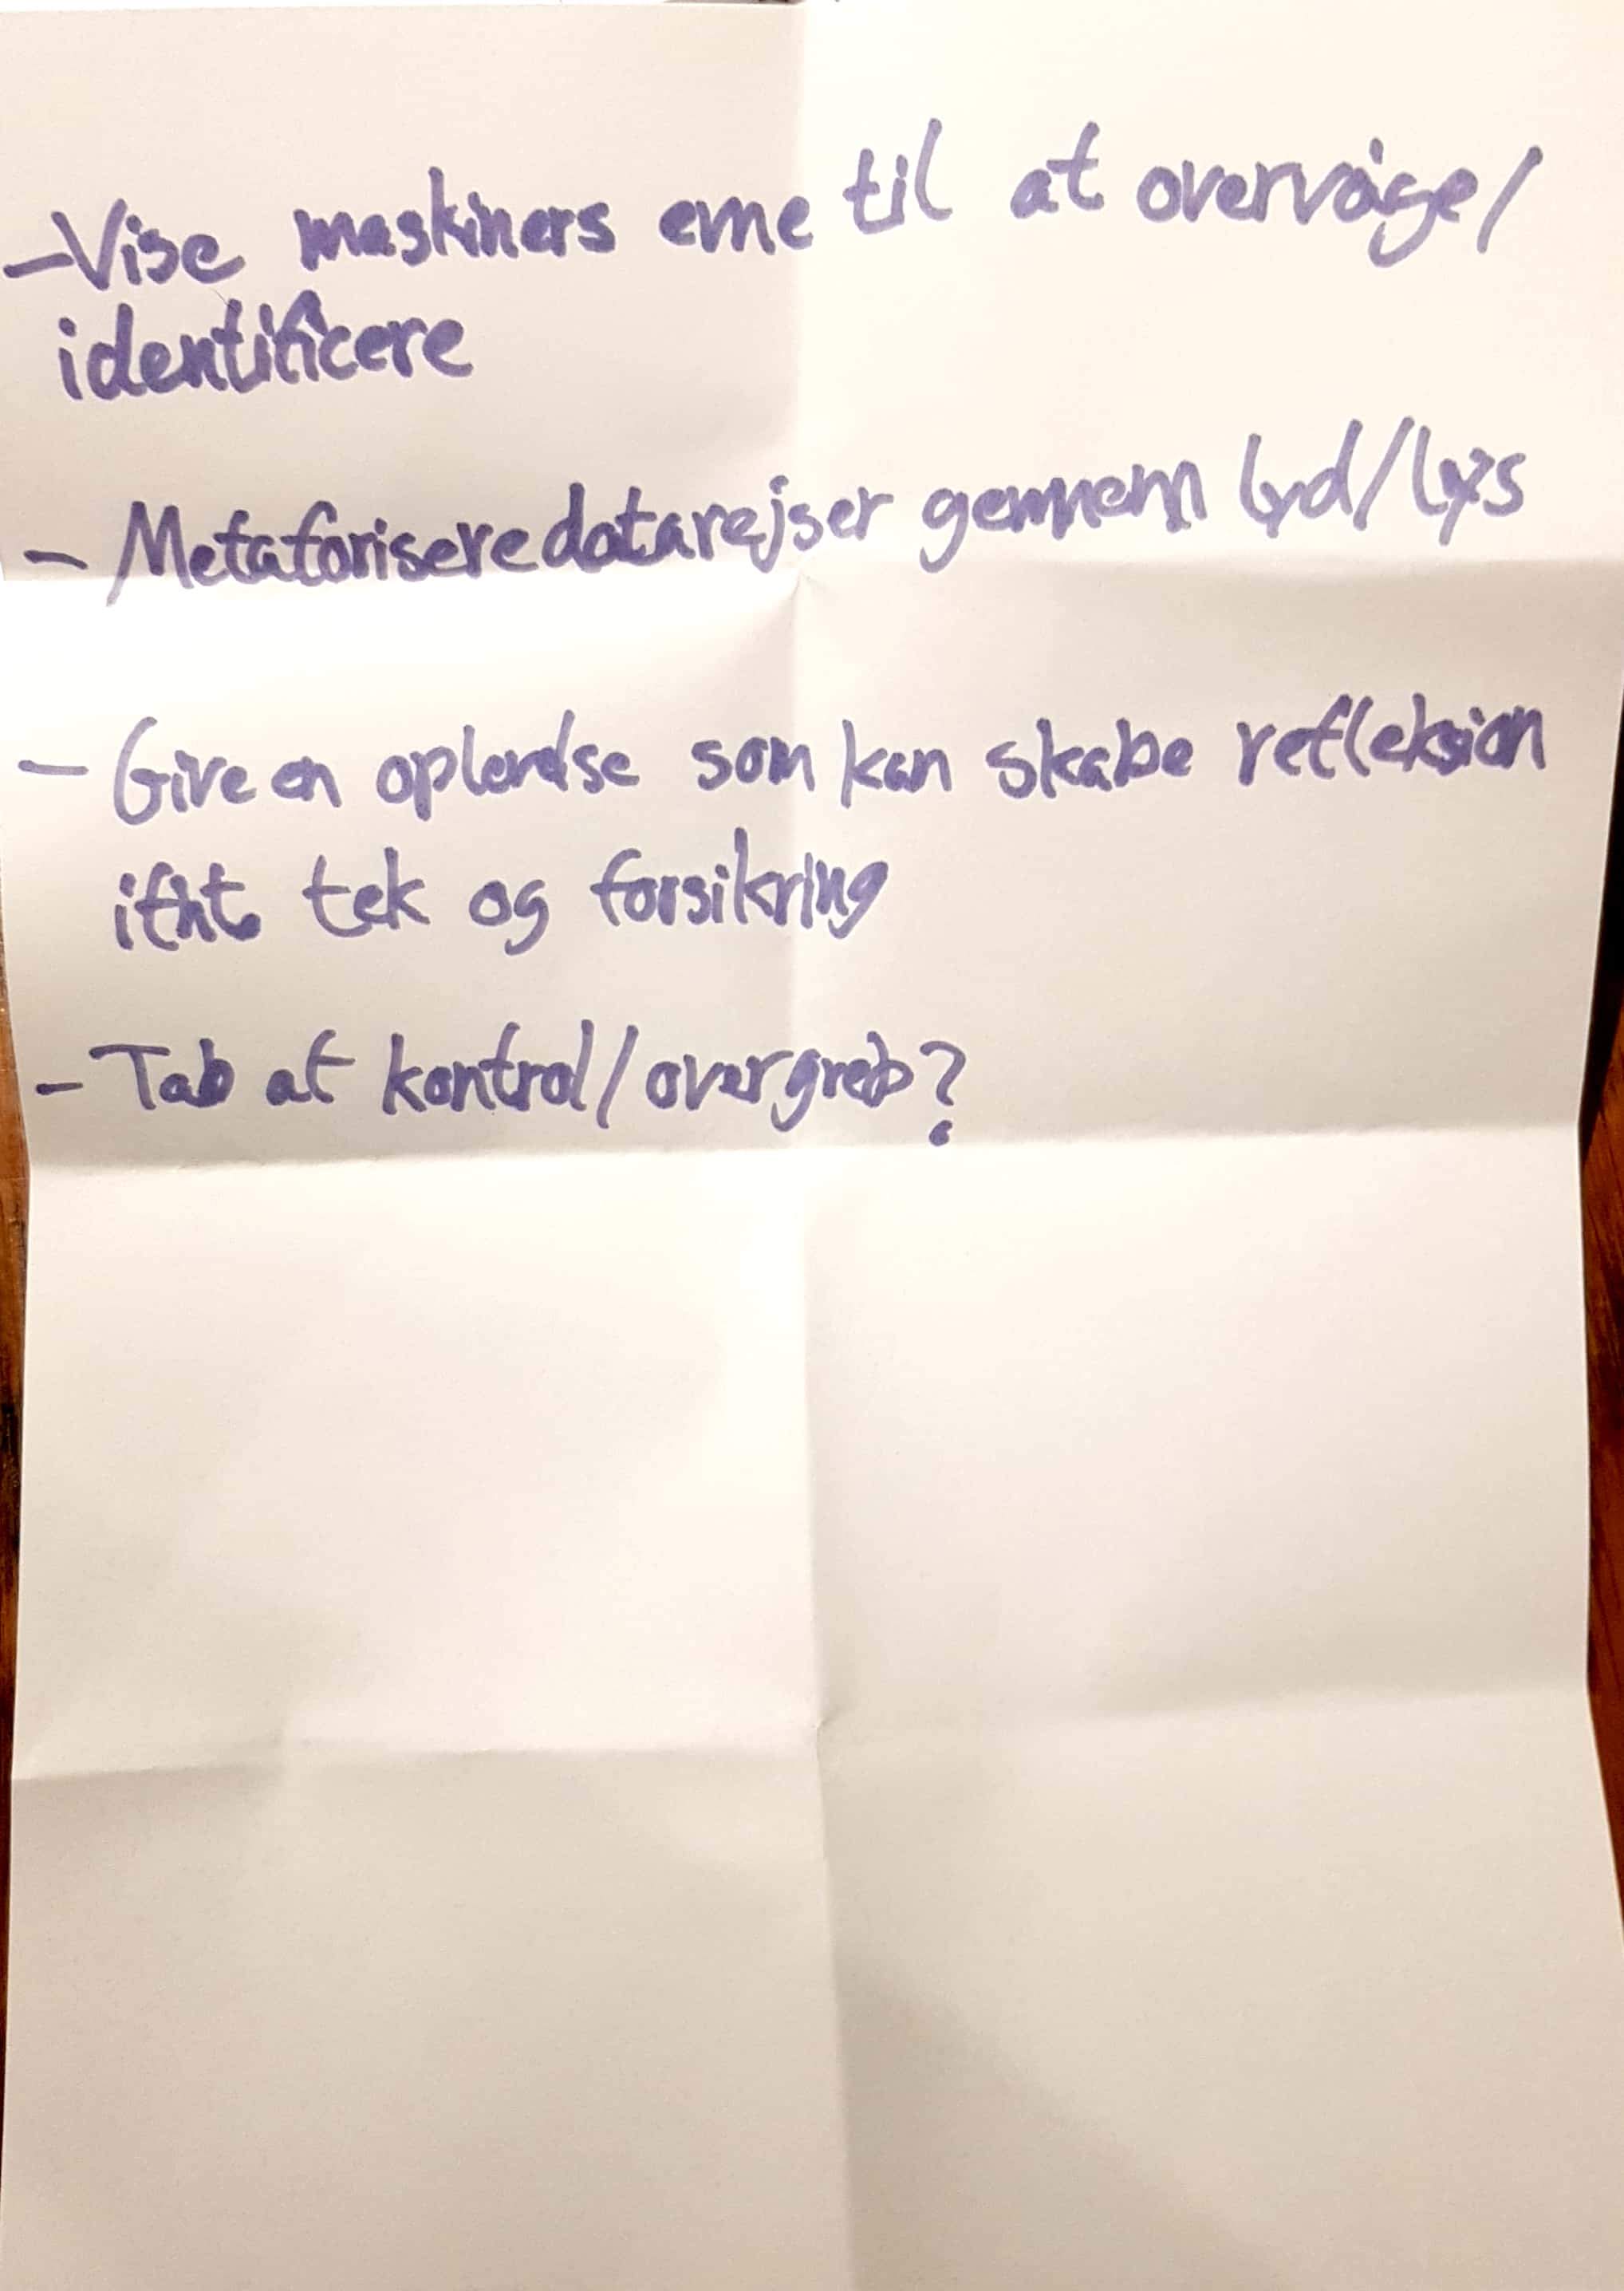 - Vise maskiners evne til at overvåge/
identificere
- Metaforisere datarejser gennem lyd/lys
- Give en oplevelse som kan skabe refleksion
ifht tek og forsikring
- Tab af kontrol/overgreb?